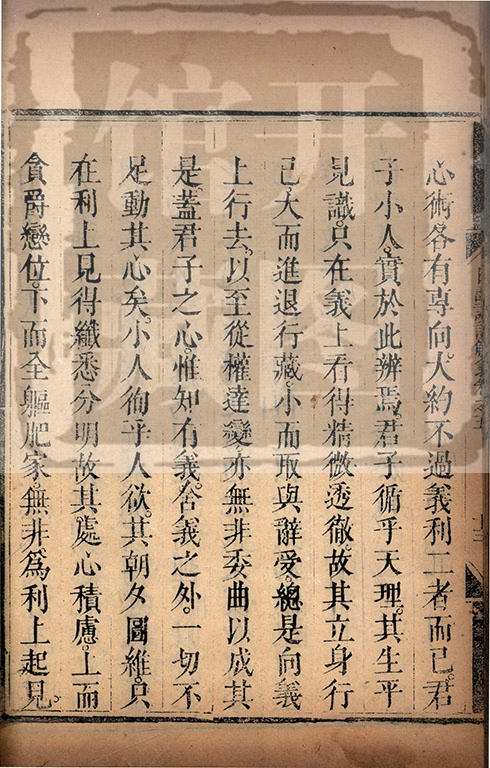 心術各有專向。大約不過義利二者而已。君
子小人。實於此辨焉。君子循乎天理。其生平
見識。只在義上看得精微透徹。故其立身行
已。大而進退行藏。小而取與辭受。總是向義
上行去。以至從權達變。亦無非委曲以成其
是。蓋君子之心。惟知有義。舍義之外。一切不
足動其心矣。小人徇乎人欲。其朝夕圖維。只
在利上見得纖悉分明。故其處心積慮。上而
貪爵戀位。下而全軀肥家。無非為利上起見。